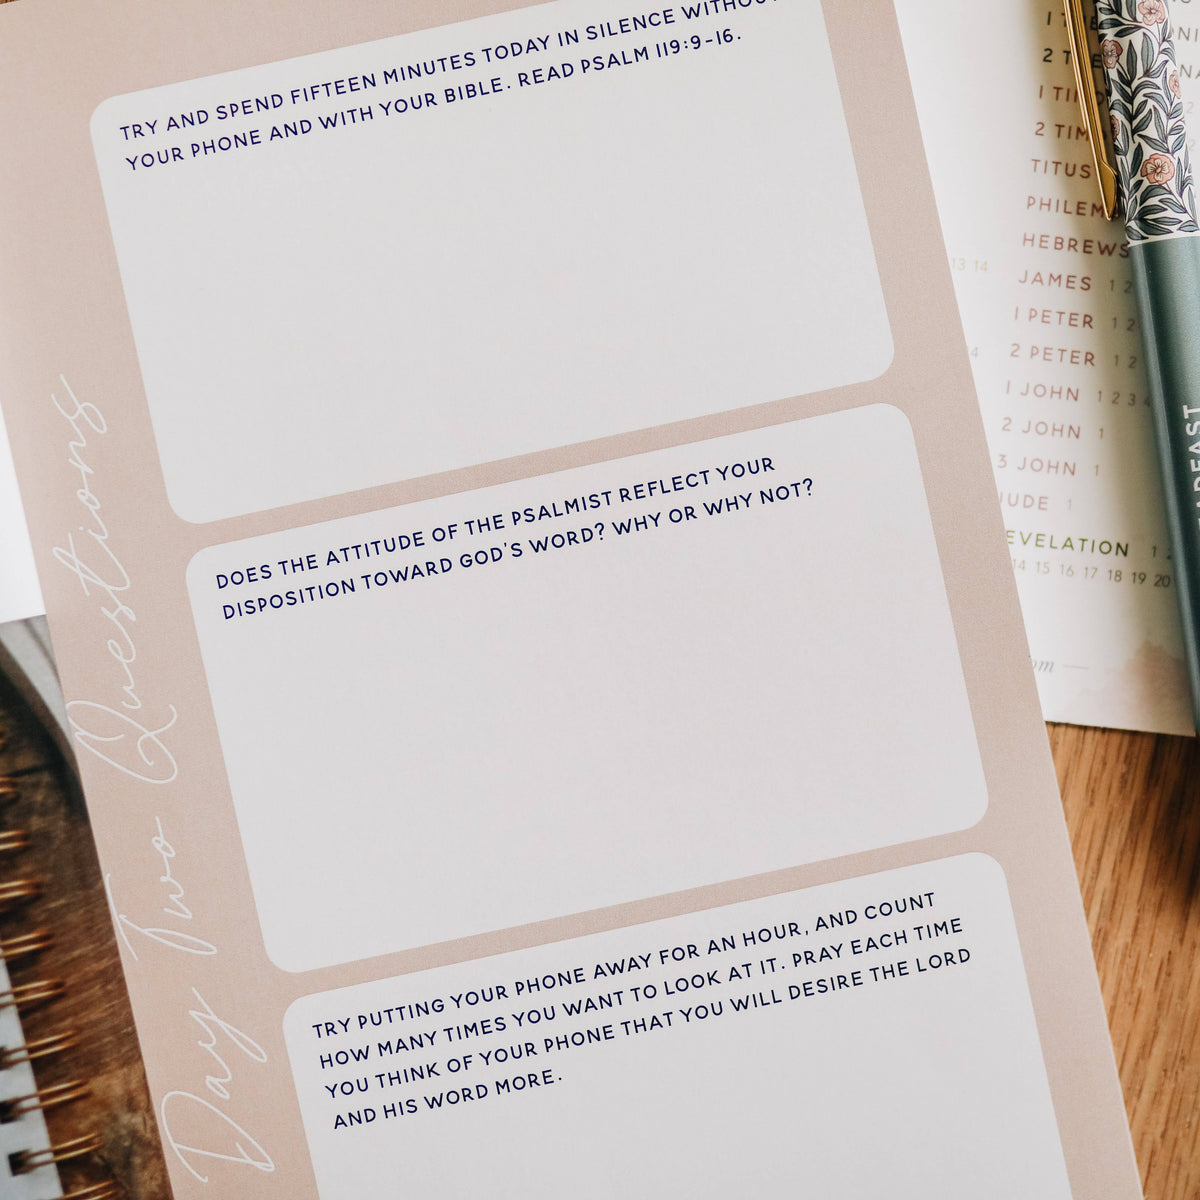 TRY AND SPEND FIFTEEN MINUTES TODAY IN SILENCE WITHOUT
YOUR PHONE AND WITH YOUR BIBLE. READ PSALM 119:9-16.
DOES THE ATTITUDE OF THE PSALMIST REFLECT YOUR
DISPOSITION TOWARD GOD'S WORD? WHY OR WHY NOT?
TRY PUTTING YOUR PHONE AWAY FOR AN HOUR, AND COUNT
HOW MANY TIMES YOU WANT TO LOOK AT IT. PRAY EACH TIME
YOU THINK OF YOUR PHONE THAT YOU WILL DESIRE THE LORD
AND HIS WORD MORE.
Day Two Questions
2 TIM
TITUS
PHILEM
HEBREWS
13 14
JAMES 1 2
1 PETER 1 2
4
2 PETER 1 2
1 JOHN 1 2 3 4
2 JOHN 1
3 JOHN 1
UDE 1
EVELATION 1 2
14 15 16 17 18 19 20
om
DFAST